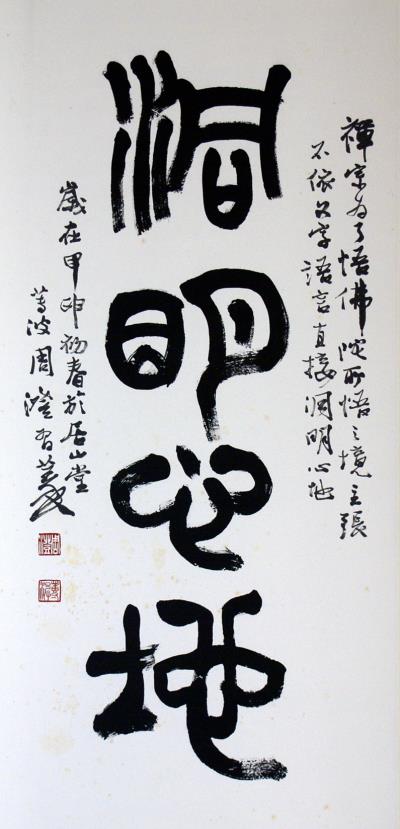 洞明心地
禪宗為了悟佛陀所悟之境主張
不依文字語言直接洞明心地
歲在甲申初春於居山堂
蓴波周澄習篆
周澄